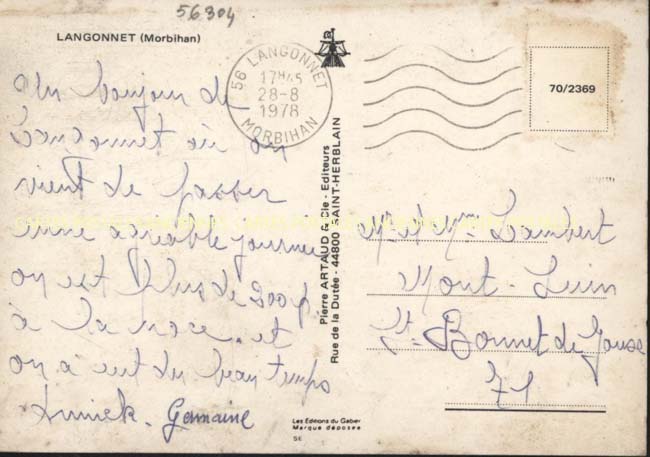 56.304
LANGONNET (Morbihan)
56 LANGONNET
17H45
28-8
1978
MORBIHAN
70/2369
Un bonjour de
Langonnet où on
vient de passer
une agréable journée
on est plus de 200 p.
à la noce. et
on a eut du beau temps
Annick. Germaine
Pierre ARTAUD & Cie - Editeurs
Rue de la Dutée - 44800 SAINT-HERBLAIN
Mr et Mme Lambert
Mont-
St-Bonnet de Joux
71
Les Editions du Gabier
Marque déposée